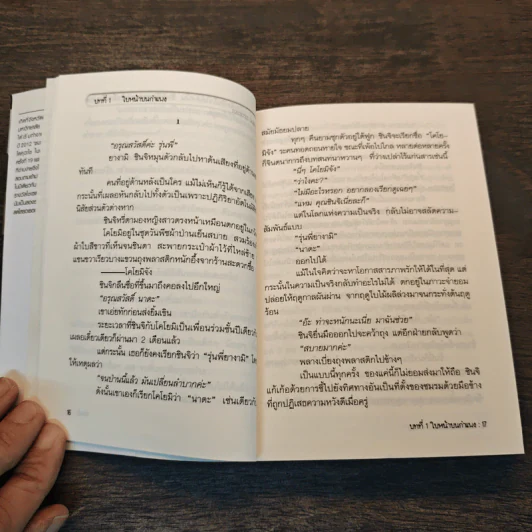 บทที่ 1 ใบหน้าบนกำแพง
1
"อรุณสวัสดิ์ค่ะ รุ่นพี่"
ยางามิ ชินจิหมุนตัวกลับไปหาต้นเสียงที่อยู่ด้านหลัง
ทันที
คนที่อยู่ด้านหลังเป็นใคร แม้ไม่เห็นก็รู้ได้จากเสียง
กระนั้นที่เผลอหันกลับไปทั้งตัวเป็นเพราะปฏิกิริยาอัตโนมัติ
นิสัยส่วนตัวต่างหาก
ชินจิหรี่ตามองหญิงสาวตรงหน้าเหมือนตกอยู่ใน
โคโยมิอยู่ในชุดวันพีซผ้าป่านเย็นสบาย สวมรองเท้า
ผ้าใบสีขาวที่เห็นจนชินตา สะพายกระเป๋าผ้าไว้ที่ไหล่ข้าง
แขนขวาเรียวบางแขวนถุงพลาสติกหนักอึ้งจากร้านสะดวกซื้อ
———โคโยมิจัง
ชินจิกลืนชื่อที่ขึ้นมาถึงคอลงไปอึกใหญ่
"อรุณสวัสดิ์ นาตะ"
เขาเอ่ยทักก่อนส่งยิ้มเขิน
ระยะเวลาที่ชินจิกับโคโยมิเป็นเพื่อนร่วมชั้นปีเดียว
เผลอเดี๋ยวเดียวก็ผ่านมา 2 เดือนแล้ว
แต่กระนั้น เธอก็ยังคงเรียกชินจิว่า "รุ่นพี่ยางามิ" โดย
ให้เหตุผลว่า
"จนป่านนี้แล้ว มันเปลี่ยนลำบากค่ะ"
ดังนั้นเขาเองก็เรียกโคโยมิว่า "นาตะ" เช่นเดียวกับ
16
สมัยมัธยมปลาย
ทุกๆ คืนยามซุกตัวอยู่ใต้ฟูก ชินจิจะเรียกชื่อ "โคโย-
มิจัง" ระคนทอดถอนหายใจ ขณะที่เพ้อไปไกล หลายต่อหลายครั้ง
ก็จินตนาการถึงบทสนทนาหวานๆ ที่ว่างเปล่าไร้แก่นสารเช่นนี้
"นี่ๆ โคโยมิจัง"
"ว่าไงคะ?"
"ไม่มีอะไรหรอก อยากลองเรียกดูเฉยๆ"
"แหม คุณชินจิเนี่ยละก็"
แต่ในโลกแห่งความเป็นจริง กลับไม่อาจสลัดความ
สัมพันธ์แบบ
"รุ่นพี่ยางามิ"
"นาตะ"
ออกไปได้
แม้ในใจคิดว่าจะหาโอกาสสารภาพรักให้ได้ในที่สุด แต่
กระนั้นในความเป็นจริงกลับทำอะไรไม่ได้ ตกอยู่ในภาวะจำยอม
ปล่อยให้ฤดูกาลผันผ่าน จากฤดูใบไม้ผลิล่วงมาจนกระทั่งต้นฤดู
ร้อน
"อ๊ะ ท่าจะหนักนะเนี่ย มาฉันช่วย"
ชินจิยื่นมือออกไปจะคว้าถุง แต่อีกฝ่ายกลับพูดว่า
"สบายมากค่ะ"
พลางเบี่ยงถุงพลาสติกไปข้างๆ
เป็นแบบนี้ทุกครั้ง ของแค่นี้ก็ไม่ยอมส่งมาให้ถือ ชินจิ
แก้เก้อด้วยการชี้ไปยังทิศทางอันเป็นที่ตั้งของชมรมด้วยมือข้าง
ที่ถูกปฏิเสธความหวังดีเมื่อครู่
บทที่ 1 ใบหน้าบนกำแพง : 17